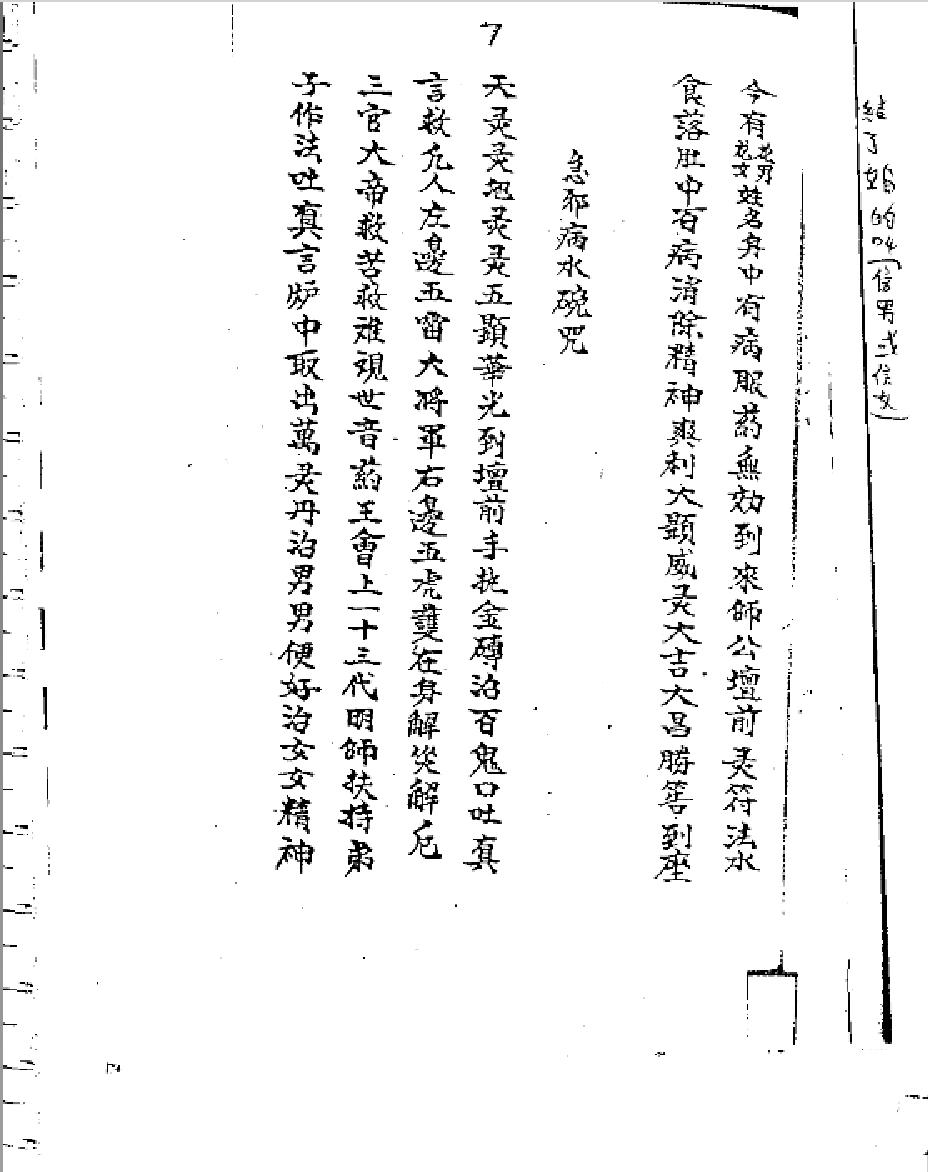 7
結了婚的叫(信男或信女)
今有花男花女姓名身中有病服葯無効到來師公壇前灵符法水
食落肚中百病消除精神爽利大顯威灵大吉大昌勝筶到座
急邪病水碗咒
天灵灵地灵灵五顕華光到壇前手执金磚治百鬼口吐真
言救凡人左邊五雷大將軍右邊五虎護在身解災解厄
三官大帝救苦救难覌世音葯王會上一十三代明師扶持弟
子作法吐真言炉中取出萬灵丹治男男便好治女女精神